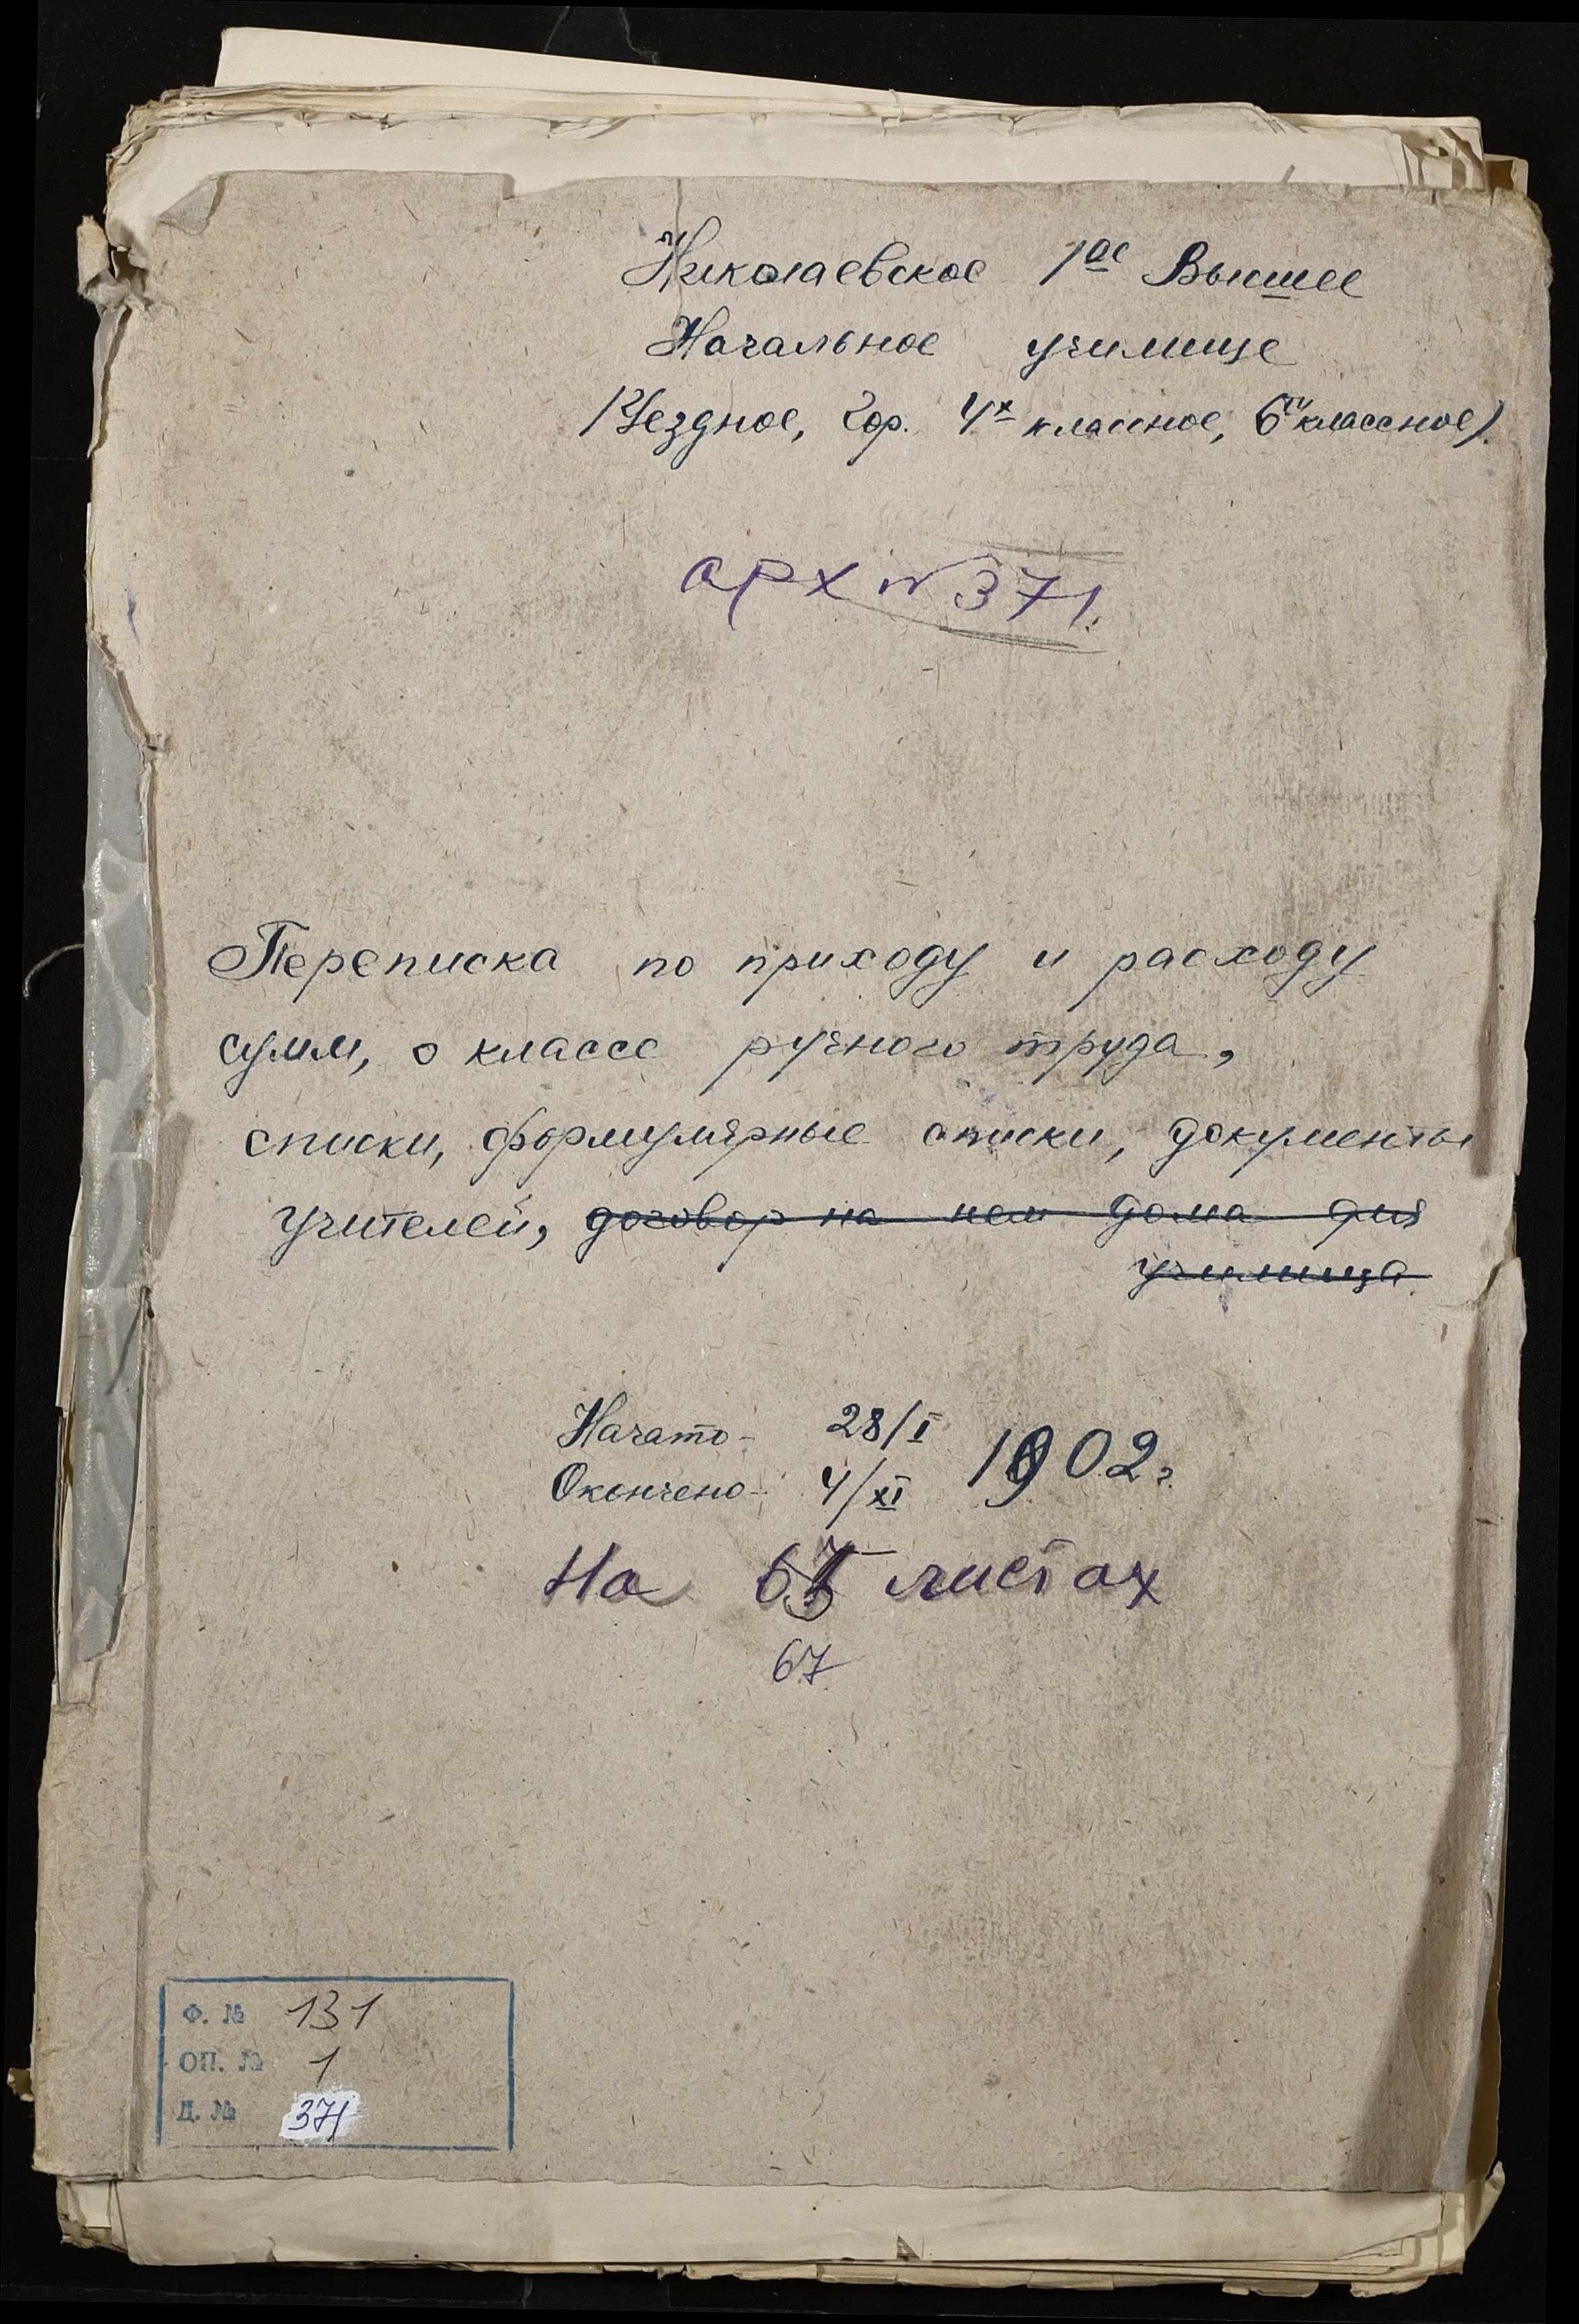 Николаевское 1ое Высшее
Начальное училище
(Уездное, гор. 4х классное, 6ти классное)
арх № 371.
Переписка по приходу и расходу
сумм, о классе ручного труда,
списки, формулярные списки, документы
учителей, договор на нем дома для
училища
Начато - 28/I 1902 г.
Окончено - 4/XI
На листах
67
Ф. № 131
ОП. № 1
Д. № 371